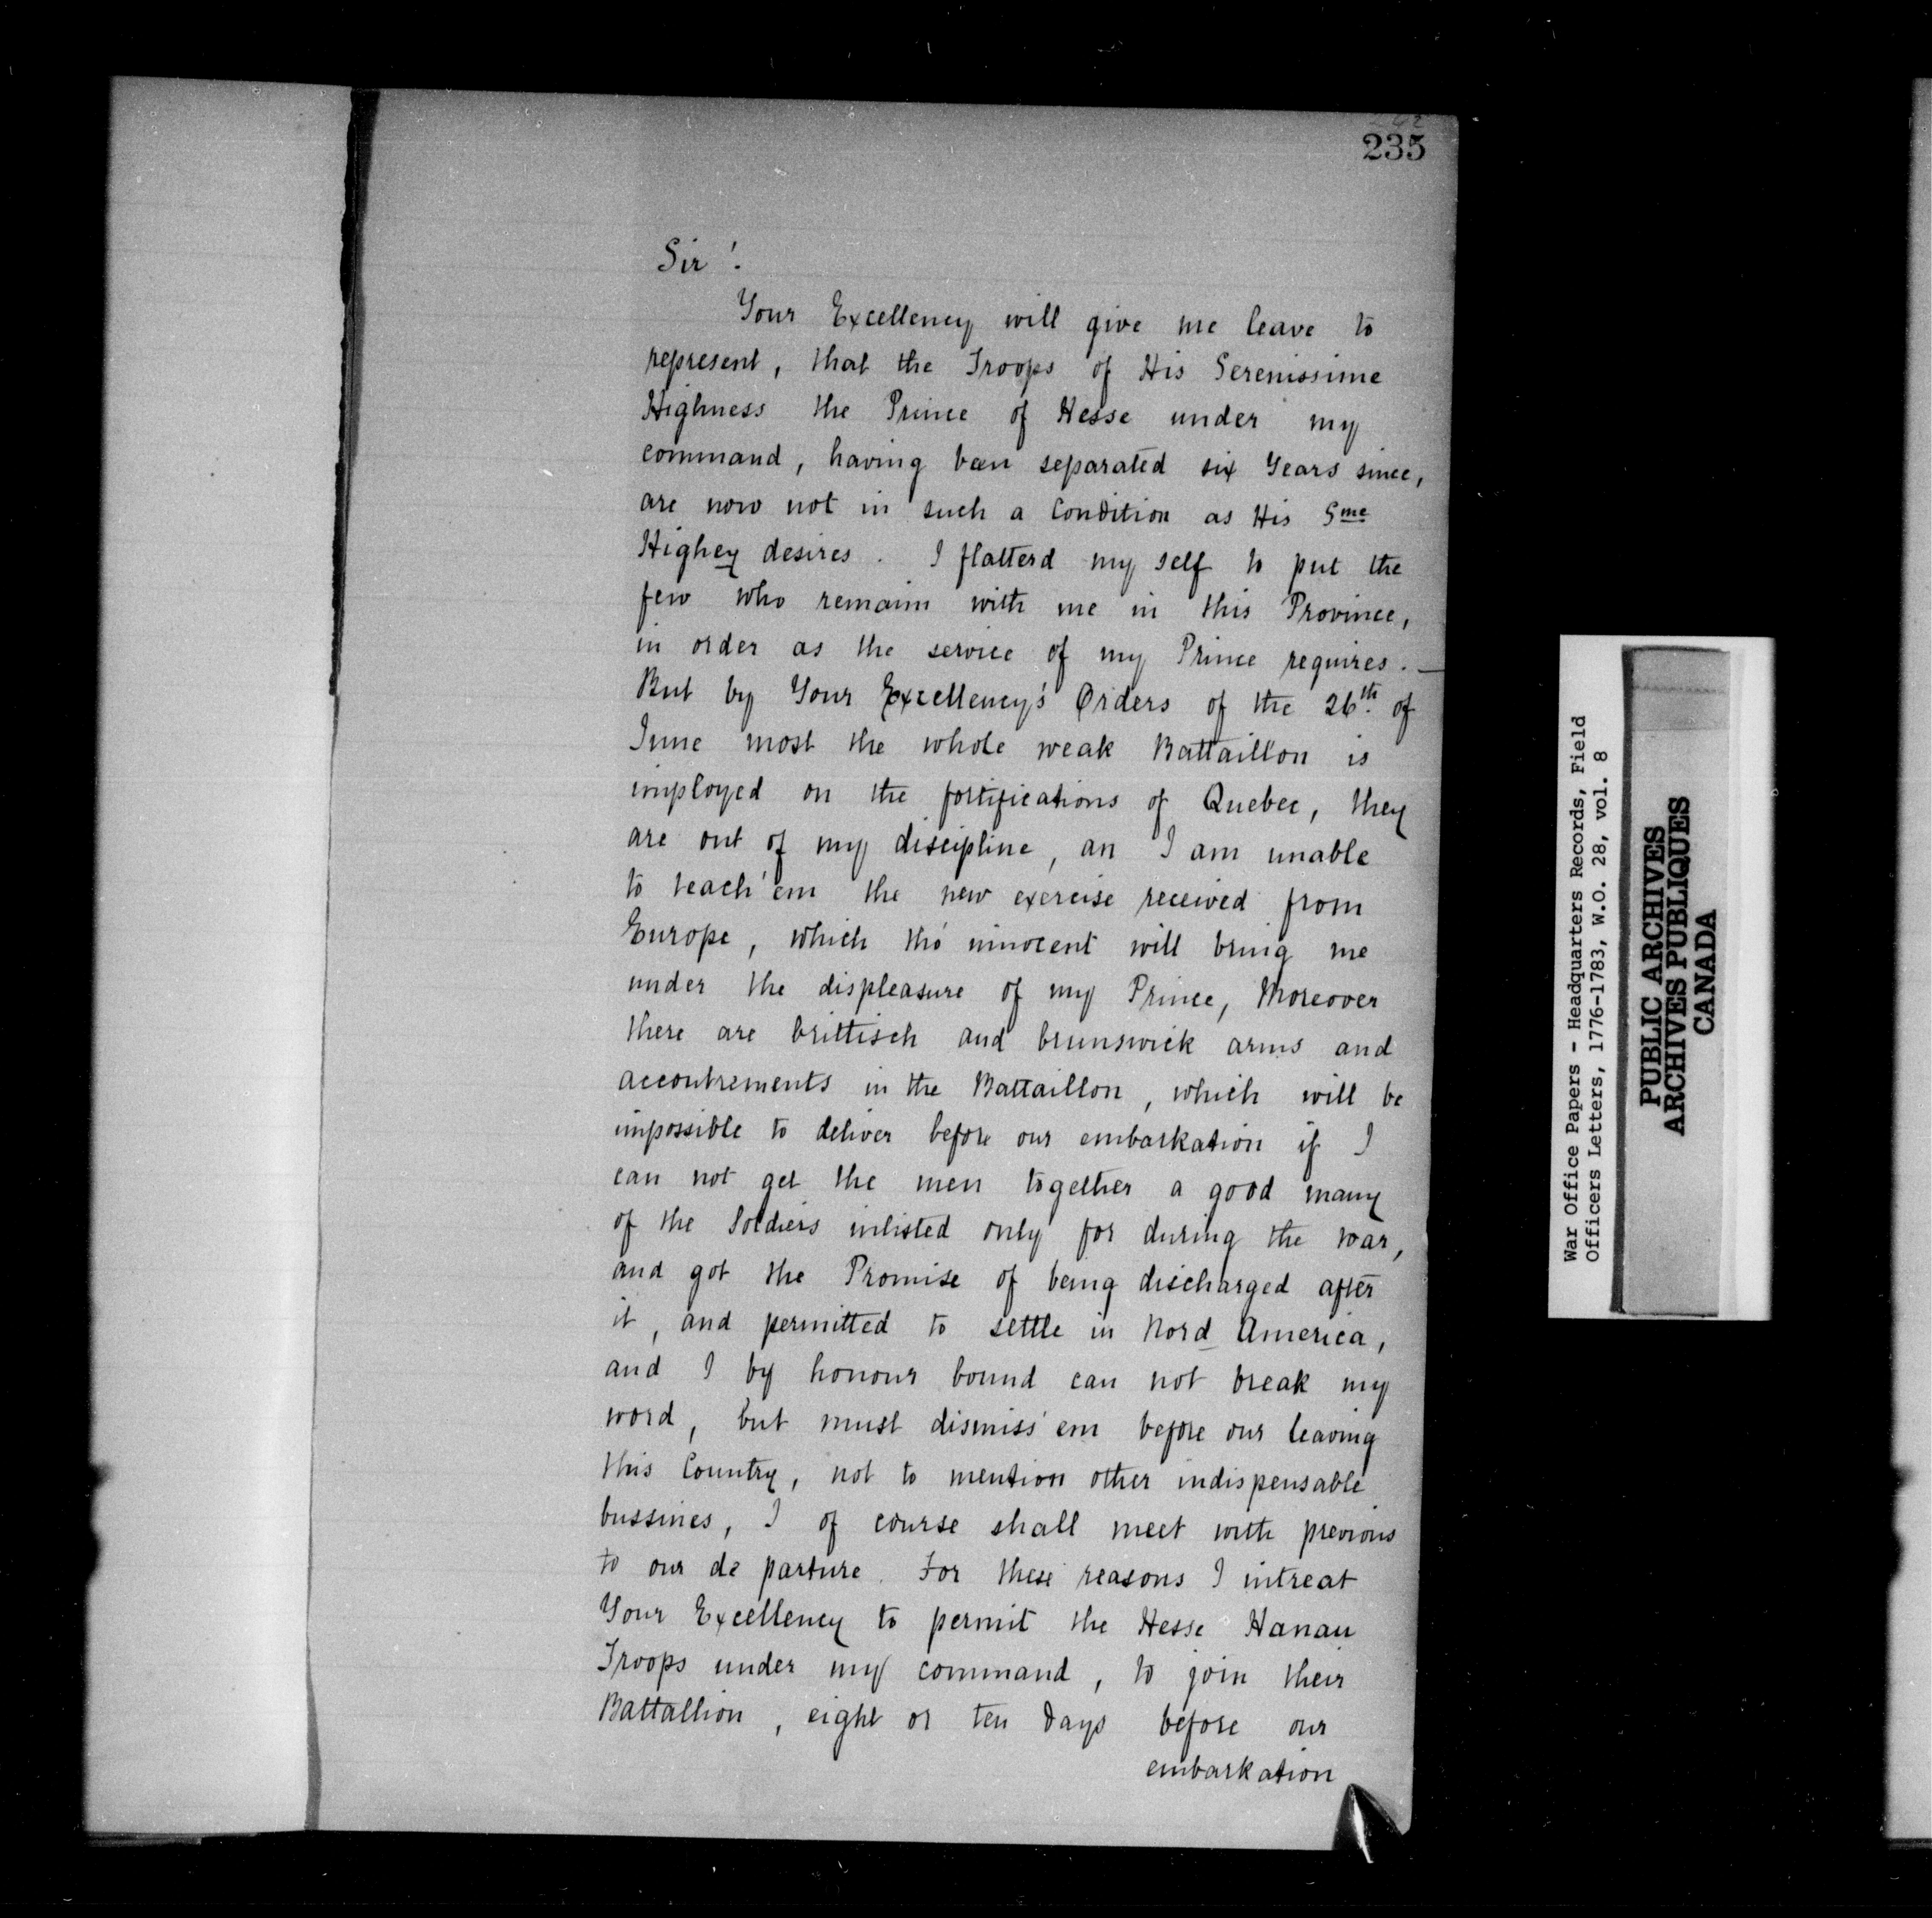 235
Sir!
Your Excellency will give me leave to
represent, that the Troops of His Serenissime
Highness the Prince of Hesse under my
command, having been separated six Years since,
are now not in such a Condition as His Sme
Highey desires. I flatterd my self to put the
few who remain with me in this Province,
in order as the service of my Prince requires. —
But by Your Excellency's Orders of the 26th. of
June most the whole weak Battaillon is
imployed on the fortifications of Quebec, they
are out of my discipline, an I am unable
to teach 'em the new exercise received from
Europe, which tho' innocent will bring me
under the displeasure of my Prince, Moreover
there are brittisch and brunswick arms and
accoutrements in the Battaillon, which will be
impossible to deliver before our embarkation if I
can not get the men together a good many
of the Soldiers inlisted only for during the war,
and got the Promise of being discharged after
it, and permitted to settle in Nord America,
and I by honour bound can not break my
word, but must dismiss 'em before our leaving
this Country, not to mention other indispensable
bussines, I of course shall meet with previous
to our de parture. For these reasons I intreat
Your Excellency to permit the Hesse Hanau
Troops under my command, to join their
Battallion, eight or ten days before our
embarkation
War Office Papers - Headquarters Records, Field
Officers Letters, 1776-1783, W.O. 28, vol. 8
PUBLIC ARCHIVES
ARCHIVES PUBLIQUES
CANADA